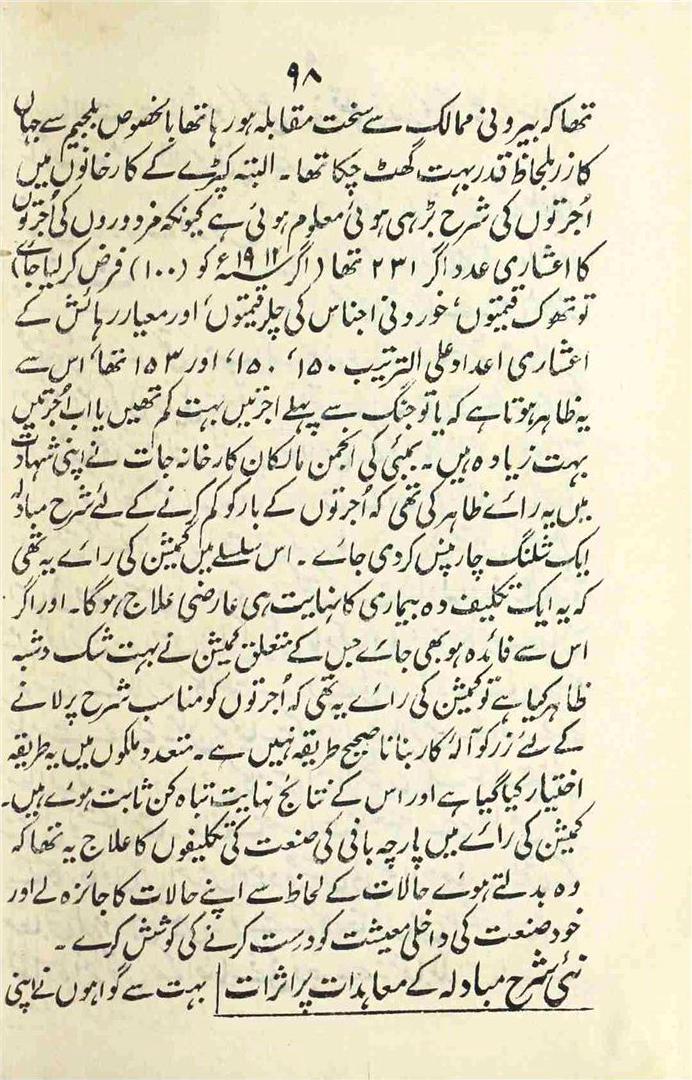 ۹۸
تھا کہ بیرونی ممالک سے سخت مقابلہ ہو رہا تھا بالخصوص بلجیم سے جہاں
کا زر بلحاظ قدر بہت گھٹ چکا تھا۔ البتہ کپڑے کے کارخانوں میں
اُجرتوں کی شرح بڑہی ہوئی معلوم ہوئی ہے کیونکہ مزدوروں کی اُجرتوں
کا اعشاری عدد اگر ۲۳۱ تھا (اگر ۱۹۱۲ء کو (۱۰۰) فرض کر لیا جائے)
تو تھوک قیمتوں، خورونی اجناس کی چلر قیمتوں، اور معیار رہائش کے
اعشاری اعداد علی الترتیب ۱۵۰، ۱۵۰، اور ۱۵۳ تھا، اس سے
یہ ظاہر ہوتا ہے کہ یا تو جنگ سے پہلے اجرتیں بہت کم تھیں یا اب اُجرتیں
بہت زیادہ ہیں۔ بمبئی کی انجمن مالکان کارخانہ جات نے اپنی شہادت
میں یہ رائے ظاہر کی تھی کہ اُجرتوں کے بار کو کم کرنے کے لئے شرح مبادلہ
ایک شلنگ چار پنس کر دی جائے۔ اس سلسلے میں کمیشن کی رائے یہ تھی
کہ یہ ایک تکلیف دہ بیماری کا نہایت ہی عارضی علاج ہوگا۔ اور اگر
اس سے فائدہ ہو بھی جائے جس کے متعلق کمیشن نے بہت شک و شبہ
ظاہر کیا ہے تو کمیشن کی رائے یہ تھی کہ اُجرتوں کو مناسب شرح پر لانے
کے لئے زر کو آلۂ کار بنانا صحیح طریقہ نہیں ہے۔ متعدد ملکوں میں یہ طریقہ
اختیار کیا گیا ہے اور اس کے نتائج نہایت تباہ کن ثابت ہوئے ہیں۔
کمیشن کی رائے میں پارچہ بافی کی صنعت کی تکلیفوں کا علاج یہ تھا کہ
وہ بدلتے ہوئے حالات کے لحاظ سے اپنے حالات کا جائزہ لے اور
خود صنعت کی داخلی معیشت کو درست کرنے کی کوشش کرے۔
نئی شرح مبادلہ کے معاہدات پر اثرات | بہت سے گواہوں نے اپنی